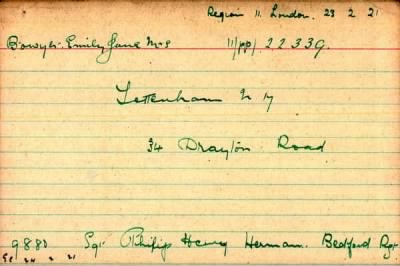 Region 11. London. 23 2 21
Bowyer. Emily Jane Mrs 11/pp/ 22339.
Tottenham N 17
34 Drayton Road
9880 Sgt Philip Henry Herman. Bedford Rgt
24 2 21